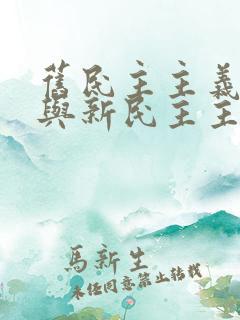 舊民主主義
與新民主主
馬新生
未經同意禁止轉載